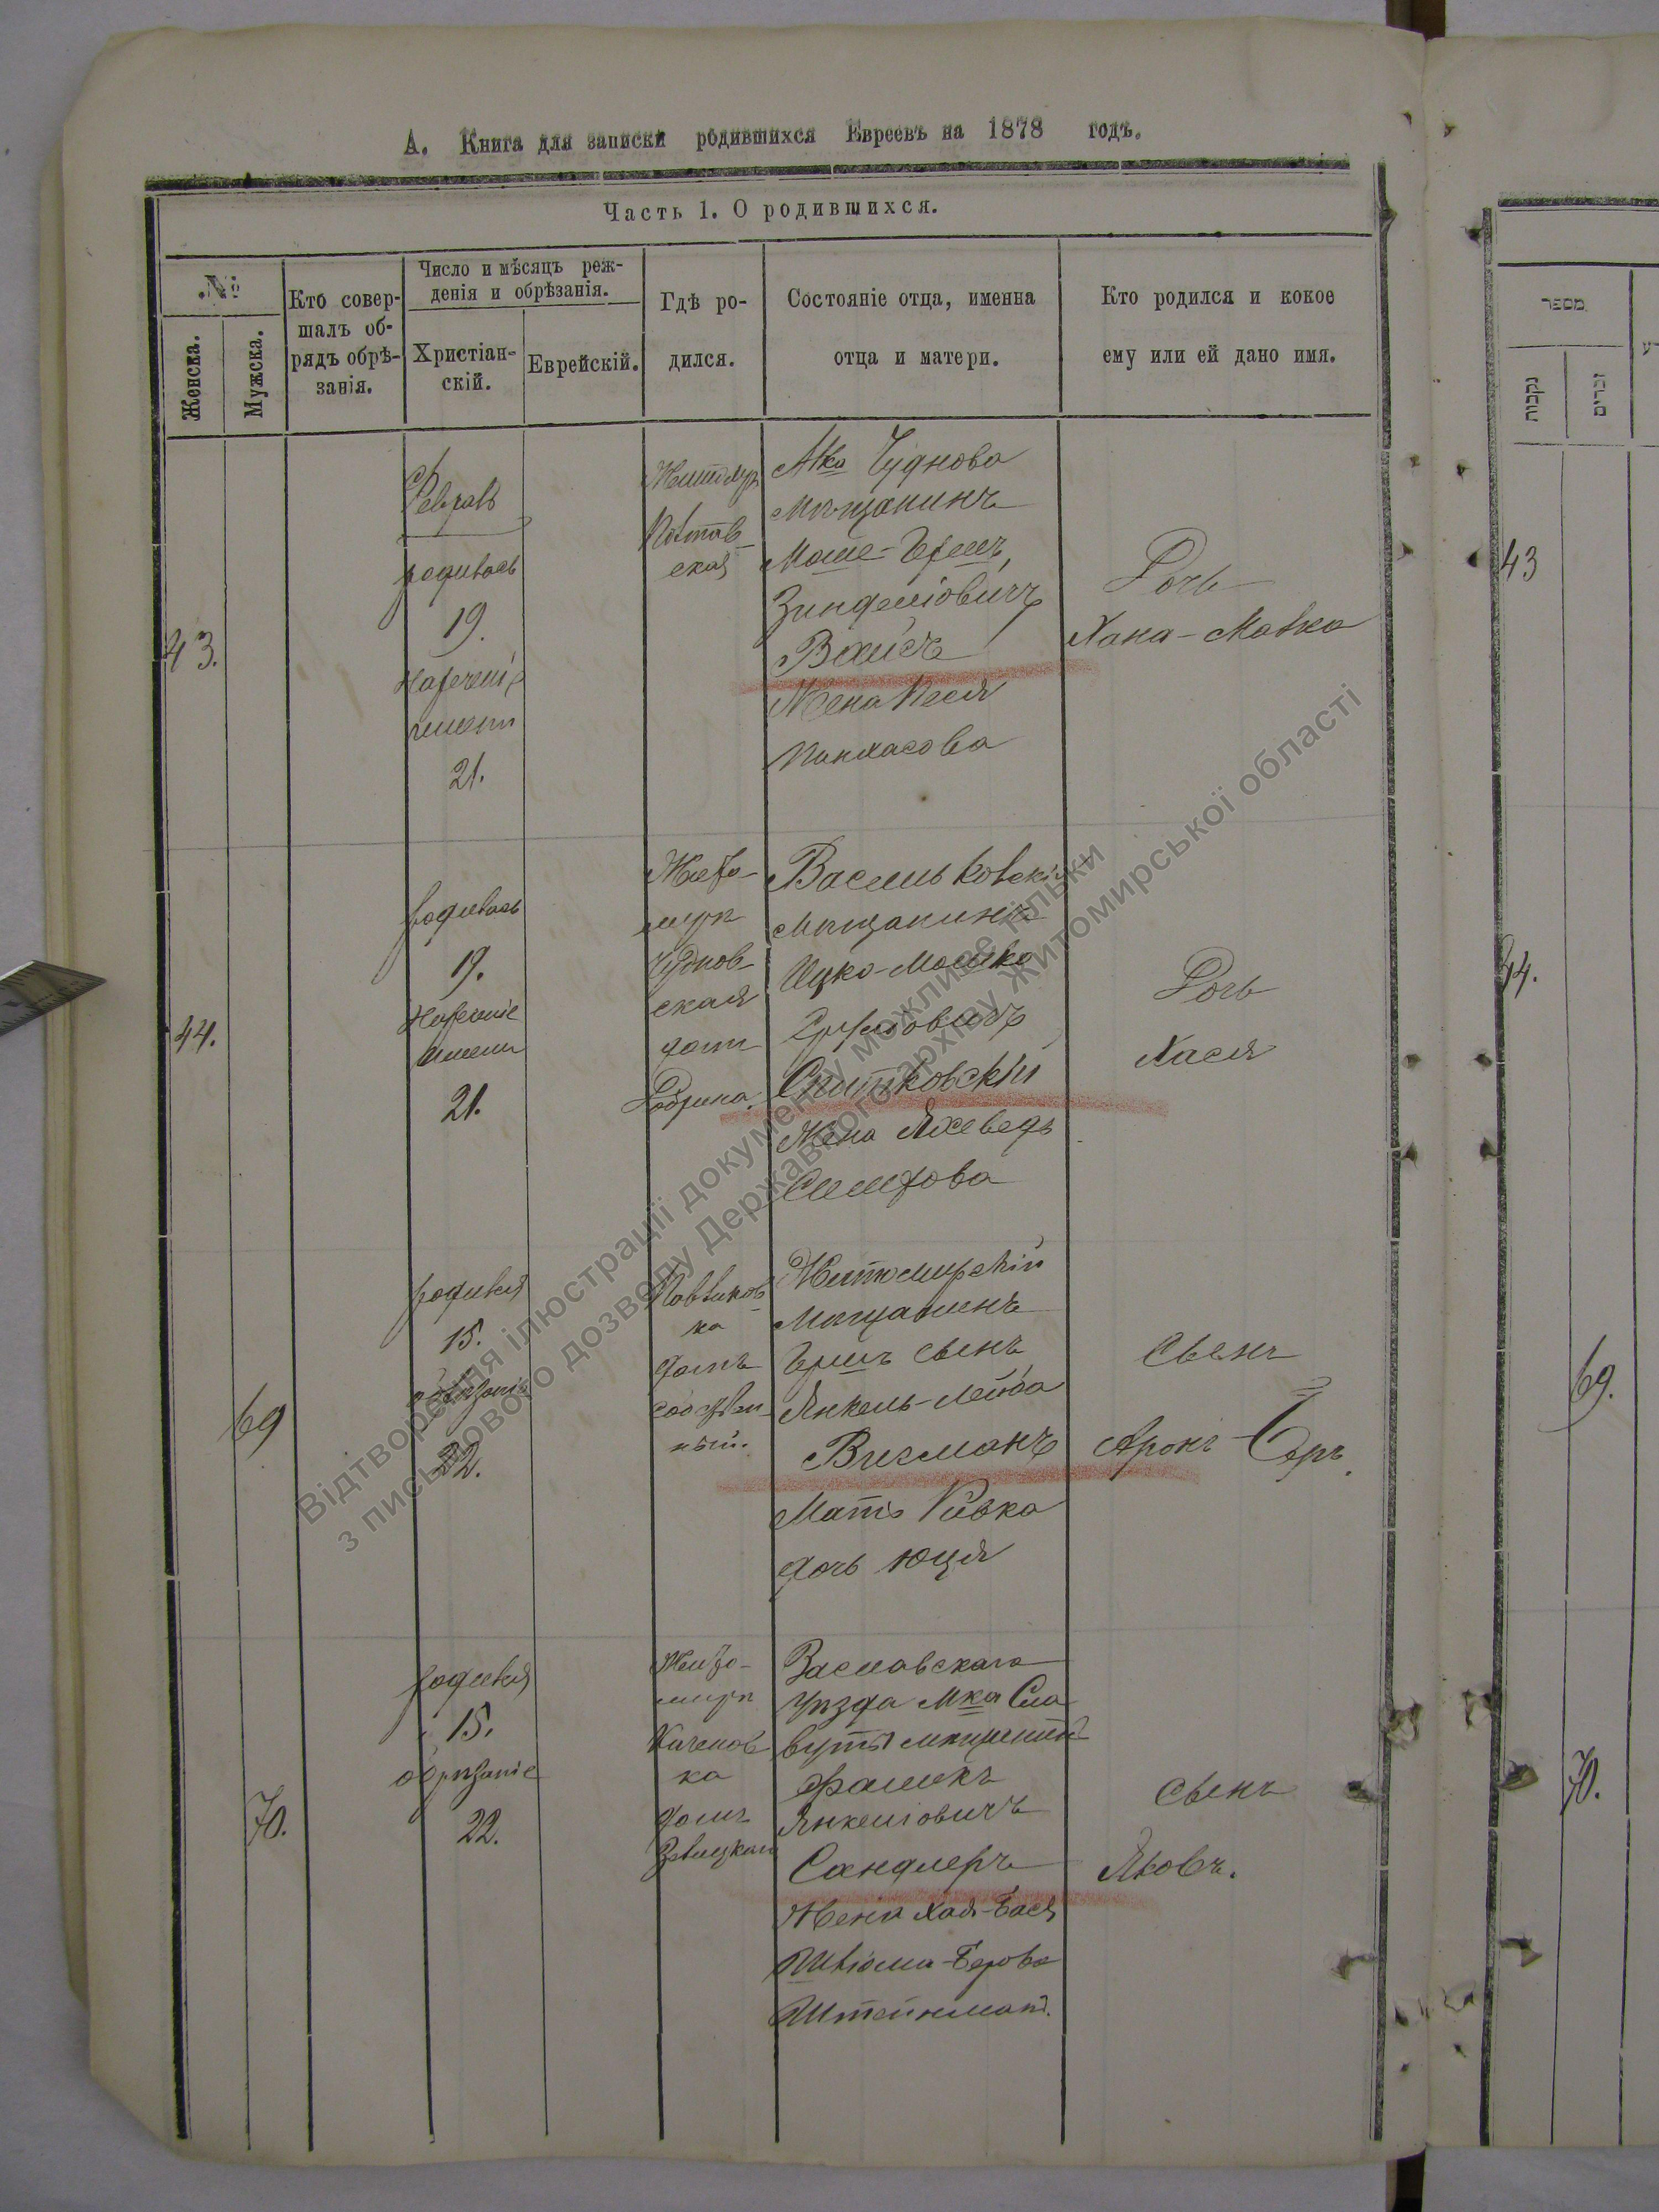 А. Книга для записки родившихся Евреевъ на 1878 годъ.
Часть 1. О родившихся.
№
Женска.
Мужска.
Кто совер-
шалъ об-
рядъ обрѣ-
занія.
Число и мѣсяцъ реж-
денія и обрѣзанія.
Христіан-
скій.
Еврейскій.
Гдѣ ро-
дился.
Состояніе отца, именна
отца и матери.
Кто родился и кокое
ему или ей дано имя.
43.
родилась
19.
21.
ская
Мка Чуднова
Мѣщанинъ
Моше-Гершъ
Вайсъ
Жена Песя
Пинхасова
Дочь
Хана-Малка
44.
родилась
19.
Нареченіе
имени
21.
Жито-
миръ
Чуднов-
ская
домъ
Васильковскій
Мѣщанинъ
Ицко-Мошко
Сруловичъ
Жена Яхеведъ
Дочь
Хася
69
родился
15.
обрѣзаніе
22.
ка
домъ
собствен-
ный.
Житомирскій
Мѣщанинъ
Гершъ сынъ
Янкель-Лейба
Вигманъ
Мать Ривка
дочь Юця
сынъ
Аронъ-Беръ.
70.
родился
15.
обрѣзаніе
22.
Жито-
миръ
ка
домъ
Заславскаго
уѣзда Мка Сла
вуты мѣщанинъ
Янкелiовичъ
Сандлеръ
Жена Хая-Бася
Шліома-Берова
Штейнман.
сынъ
Яковъ.
מספר
נקבות
זכרים
43
44.
69.
70.
Відтворення ілюстрації документу можливе тільки
з письмового дозволу Державного архіву Житомирської області